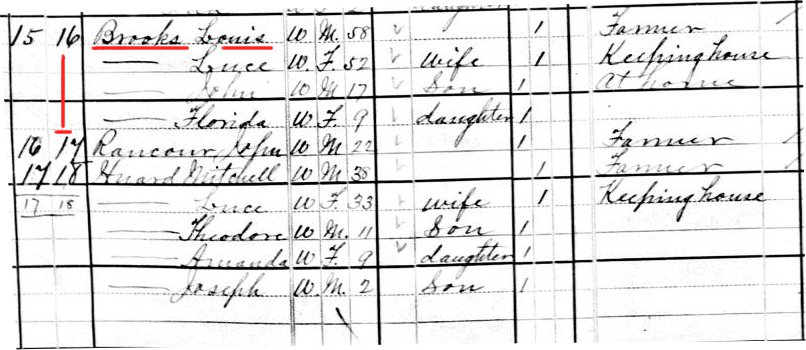 daughter
15 16 Brooks Louis W M. 58 1 Farmer
Luce W. F. 52 wife 1 Keeping house
John W M 17 Son 1 At home
Florida W F. 9 daughter 1
16 17 Rancour John W M 22 1 Farmer
17 18 Huard Mitchell W M. 38 1 Farmer
17 18 Luce W F. 33 wife 1 Keeping house
Theodore W M. 11 Son 1
Amanda W F. 9 daughter 1
Joseph W. M. 2 Son 1